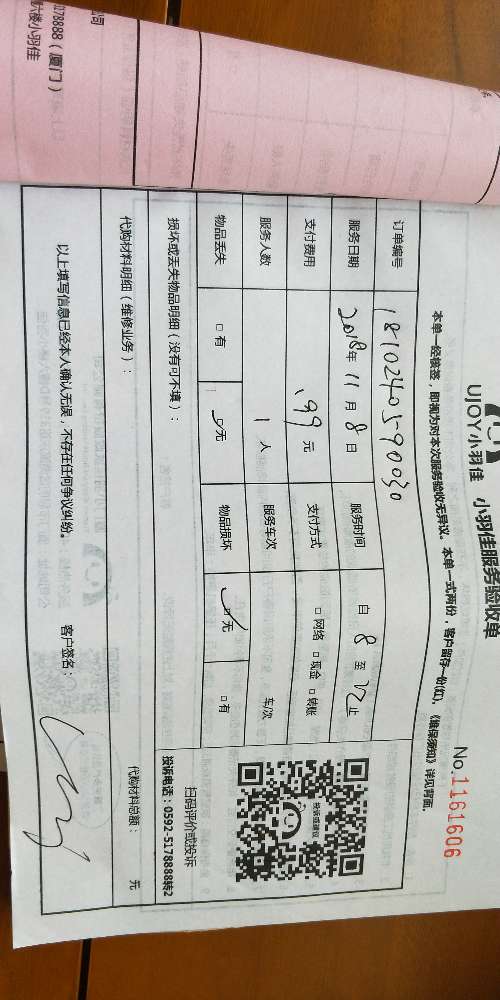 UJOY小羽佳 小羽佳服务验收单
No.1161606
本单一经核签，即视为对本次服务验收无异议。本单一式两份，客户留存一份(红)，《维保须知》详见背面.
订单编号 1810240590030
服务日期 2018年 11月 8日 服务时间 自 8 至 12 止
支付费用 199元 支付方式 □网络 □现金 □转账
服务人数 1人 服务车次 车/次
物品丢失 □有 □无 物品损坏 □无 □有
投诉或建议
扫码评价或投诉
投诉电话：0592-5178888转2
损坏或丢失物品明细（没有可不填）：
代购材料明细（维修业务）： 代购材料总额： 元
以上填写信息已经本人确认无误，不存在任何争议纠纷。 客户签名：
5178888（厦门）
六楼小羽佳
公司